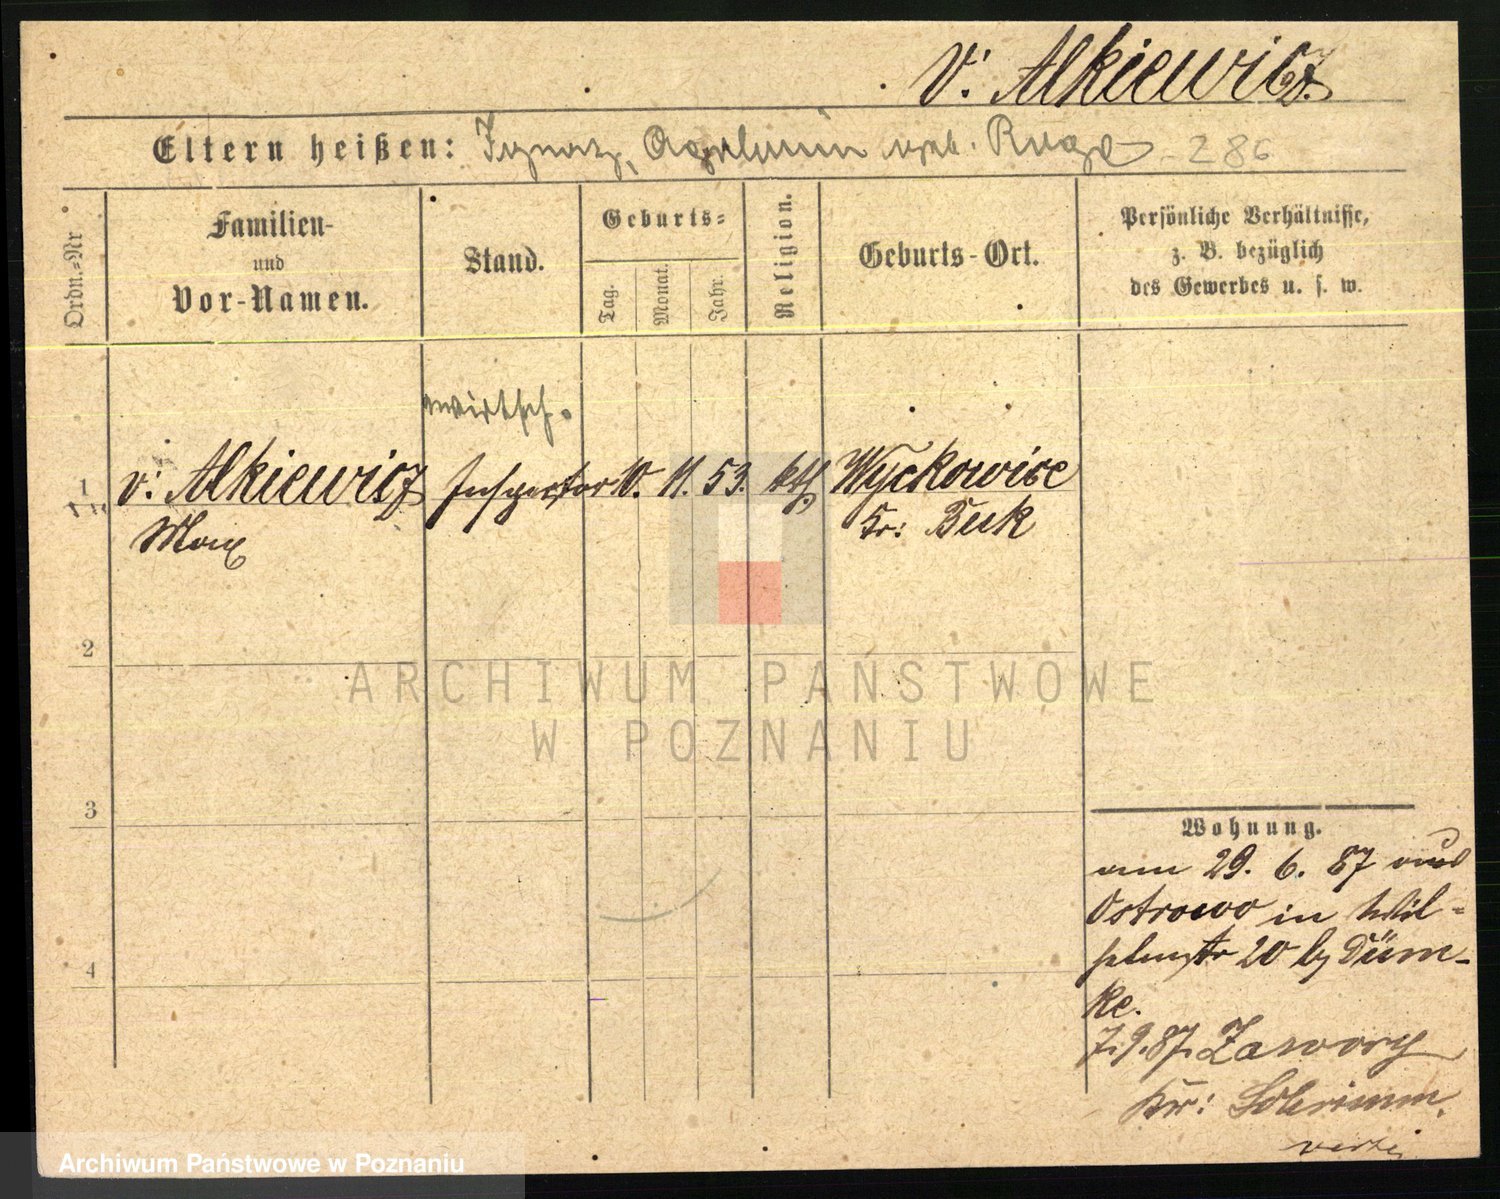 v: Alkiewicz
Eltern heißen: Ignatz, geb. 286
Ordn.-Nr
Familien-
und
Vor-Namen.
Stand.
Geburts-
Tag.
Monat.
Jahr.
Religion.
Geburts-Ort.
Persönliche Verhältnisse,
z. B. bezüglich
des Gewerbes u. s. w.
wirtsch.
1 v: Alkiewicz Inspector 10. 11. 53. kth. Wyckowice
Max Kr: Buk
2
ARCHIWUM PAŃSTWOWE
W POZNANIU
3
Wohnung.
am 29. 6. 87 aus
Ostrowo in Wil-
helmstr 20 by Düm-
ke.
4
7.9.87. Zawory
Kr: Schrimm.
Archiwum Państwowe w Poznaniu